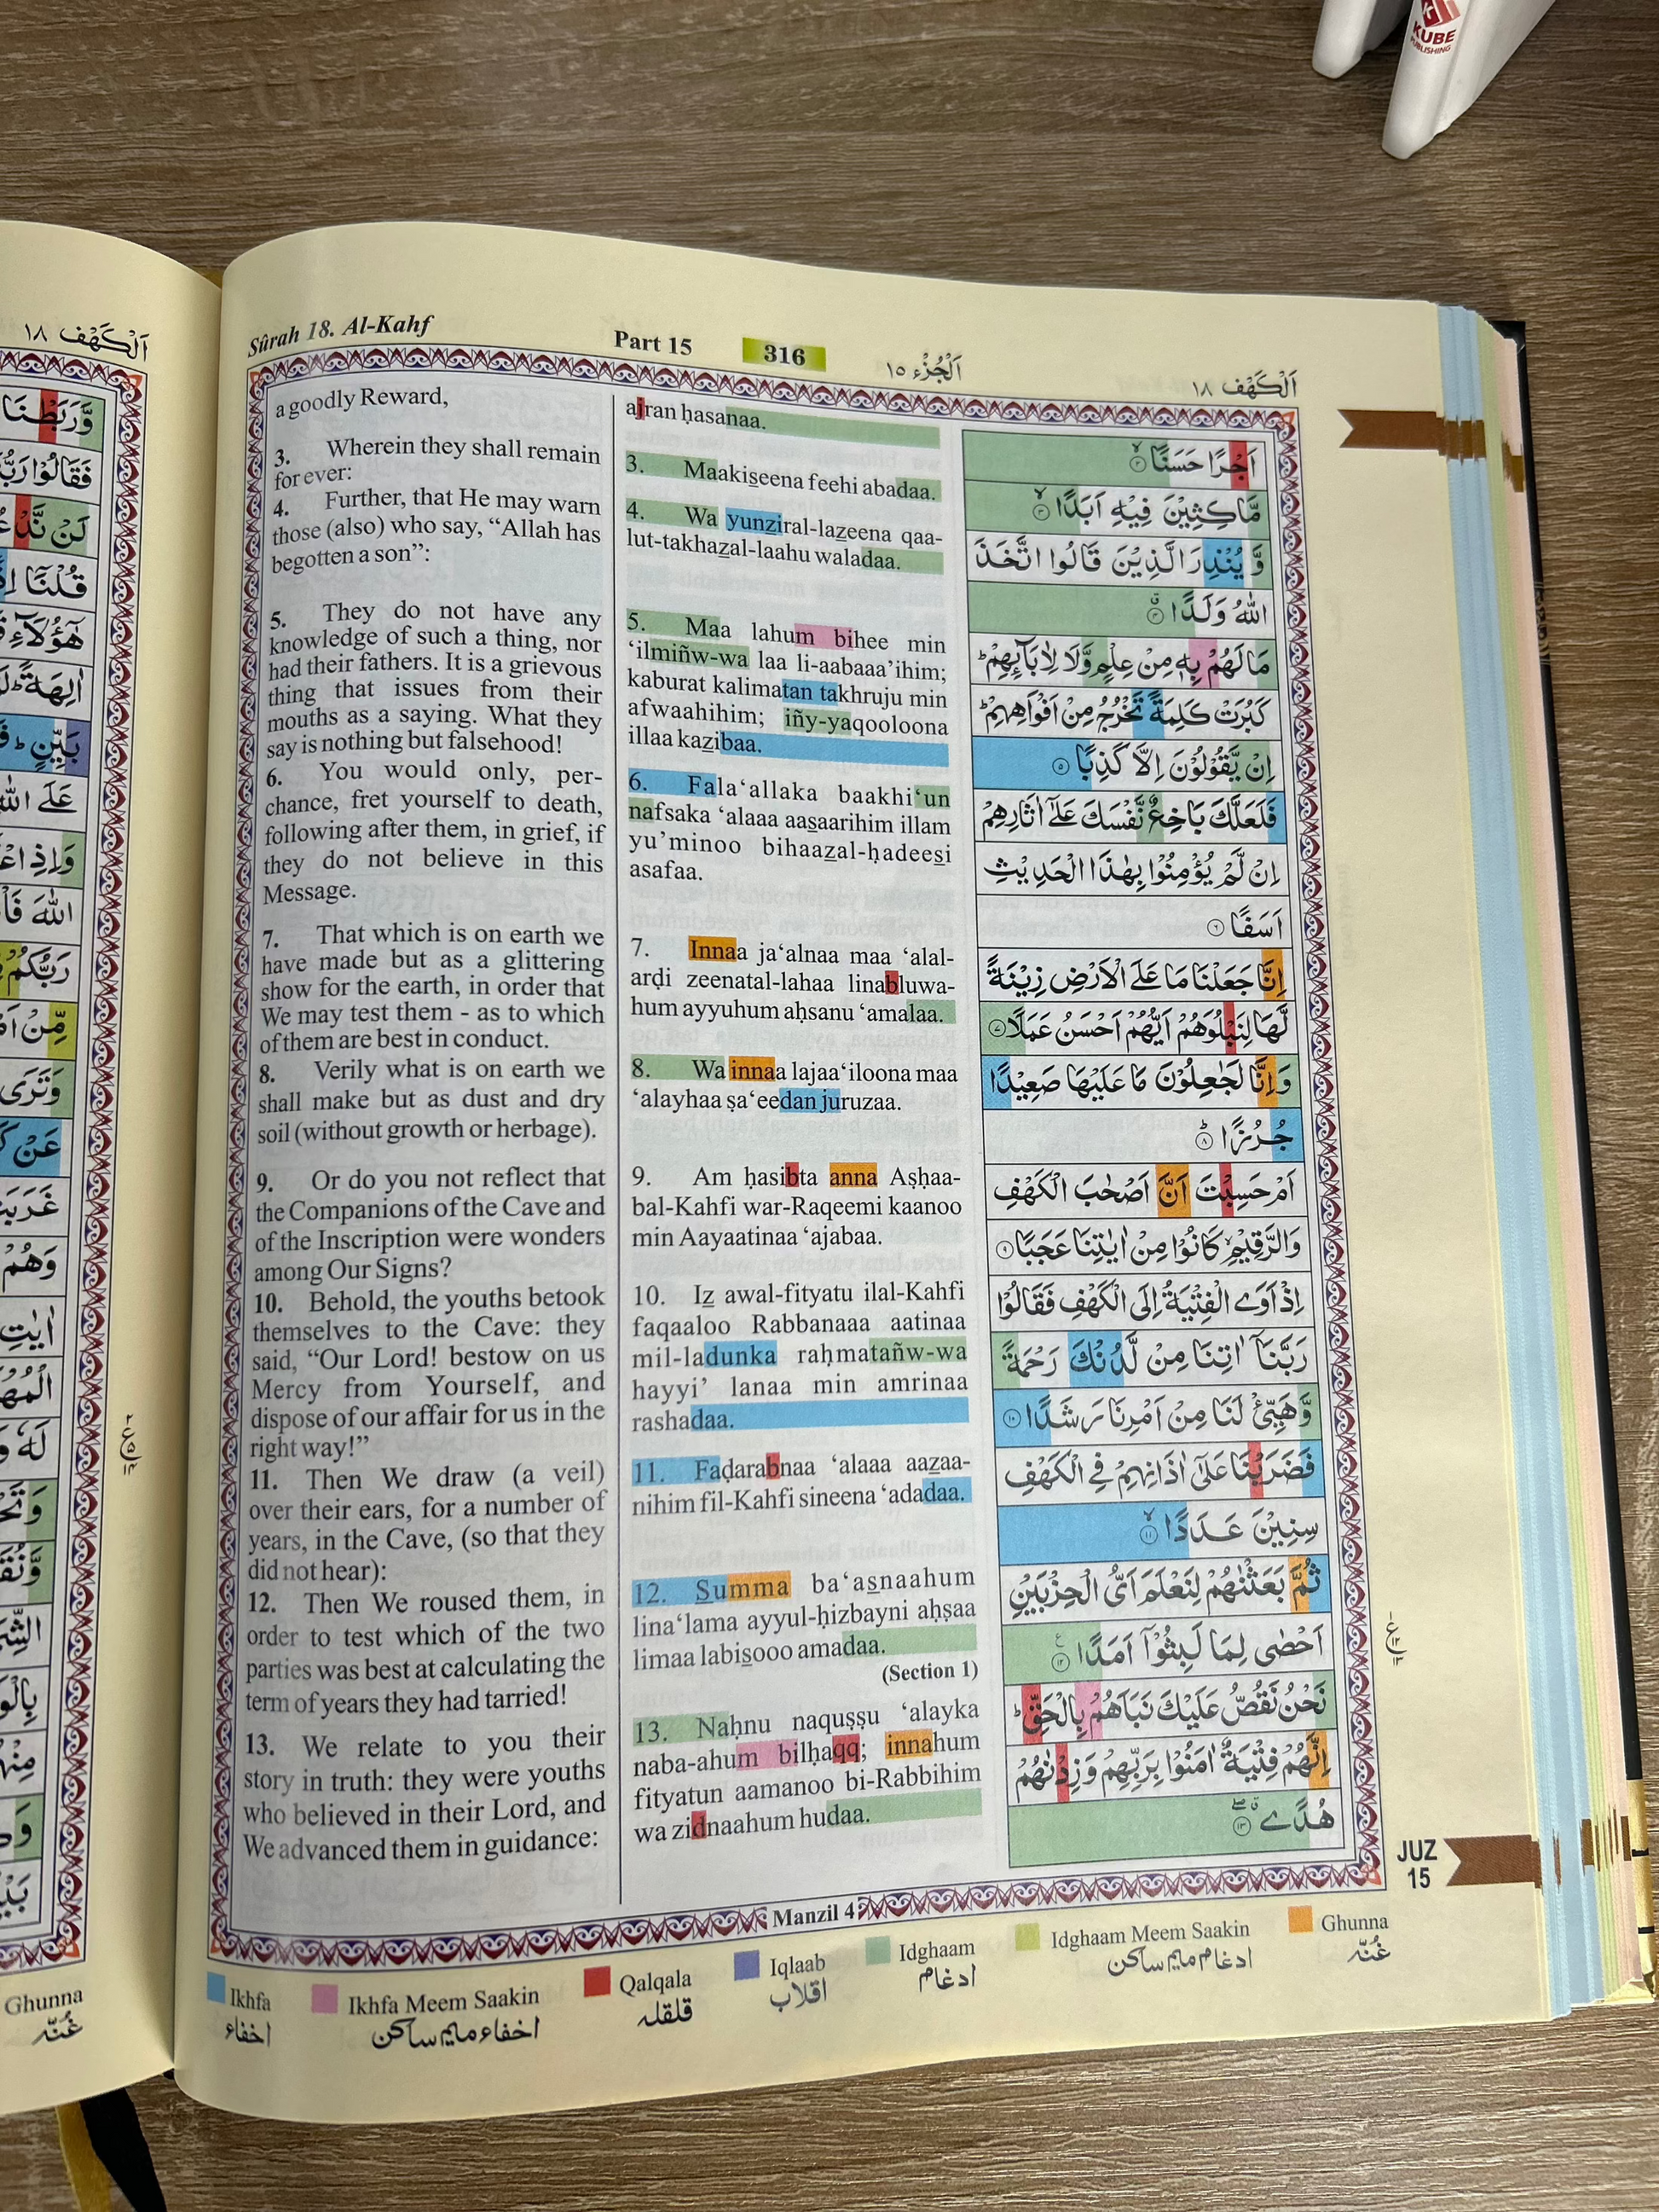 KUBE
PUBLISHING
Sûrah 18. Al-Kahf
Part 15
316
اَلْجُزْء ١٥
اَلْكَهْف ١٨
a goodly Reward,
3. Wherein they shall remain
for ever:
4. Further, that He may warn
those (also) who say, “Allah has
begotten a son”:
5. They do not have any
knowledge of such a thing, nor
had their fathers. It is a grievous
thing that issues from their
mouths as a saying. What they
say is nothing but falsehood!
6. You would only, per-
chance, fret yourself to death,
following after them, in grief, if
they do not believe in this
Message.
7. That which is on earth we
have made but as a glittering
show for the earth, in order that
We may test them - as to which
of them are best in conduct.
8. Verily what is on earth we
shall make but as dust and dry
soil (without growth or herbage).
9. Or do you not reflect that
the Companions of the Cave and
of the Inscription were wonders
among Our Signs?
10. Behold, the youths betook
themselves to the Cave: they
said, “Our Lord! bestow on us
Mercy from Yourself, and
dispose of our affair for us in the
right way!”
11. Then We draw (a veil)
over their ears, for a number of
years, in the Cave, (so that they
did not hear):
12. Then We roused them, in
order to test which of the two
parties was best at calculating the
term of years they had tarried!
13. We relate to you their
story in truth: they were youths
who believed in their Lord, and
We advanced them in guidance:
ajran ḥasanaa.
3. Maakis̱eena feehi abadaa.
4. Wa yunziral-laẕeena qaa-
lut-takhaẕal-laahu waladaa.
5. Maa lahum bihee min
‘ilmiñw-wa laa li-aabaaa’ihim;
kaburat kalimatan takhruju min
afwaahihim; iñy-yaqooloona
illaa kaẕibaa.
6. Fala‘allaka baakhi‘un
nafsaka ‘alaaa aas̱aarihim illam
yu’minoo bihaaẕal-ḥadees̱i
asafaa.
7. Innaa ja‘alnaa maa ‘alal-
arḍi zeenatal-lahaa linabluwa-
hum ayyuhum aḥsanu ‘amalaa.
8. Wa innaa lajaa‘iloona maa
‘alayhaa ṣa‘eedan juruzaa.
9. Am ḥasibta anna Aṣḥaa-
bal-Kahfi war-Raqeemi kaanoo
min Aayaatinaa ‘ajabaa.
10. Iẕ awal-fityatu ilal-Kahfi
faqaaloo Rabbanaaa aatinaa
mil-ladunka raḥmatañw-wa
hayyi’ lanaa min amrinaa
rashadaa.
11. Faḍarabnaa ‘alaaa aaẕaa-
nihim fil-Kahfi sineena ‘adadaa.
12. S̱umma ba‘as̱naahum
lina‘lama ayyul-ḥizbayni aḥṣaa
limaa labis̱ooo amadaa.
(Section 1)
13. Naḥnu naquṣṣu ‘alayka
naba-ahum bilḥaqq; innahum
fityatun aamanoo bi-Rabbihim
wa zidnaahum hudaa.
اَجْرًا حَسَنًا ۙ‏﴿٢﴾
مَّاكِثِيْنَ فِيْهِ اَبَدًا ۙ‏﴿٣﴾
وَّيُنْذِرَ الَّذِيْنَ قَالُوا اتَّخَذَ
اللّٰهُ وَلَدًا ۗ‏﴿٤﴾
مَا لَهُمْ بِهٖ مِنْ عِلْمٍ وَّلَا لِاٰبَآئِهِمْ ؕ
كَبُرَتْ كَلِمَةً تَخْرُجُ مِنْ اَفْوَاهِهِمْ ؕ
اِنْ يَّقُوْلُوْنَ اِلَّا كَذِبًا ‏﴿٥﴾
فَلَعَلَّكَ بَاخِعٌ نَّفْسَكَ عَلٰٓى اٰثَارِهِمْ
اِنْ لَّمْ يُؤْمِنُوْا بِهٰذَا الْحَدِيْثِ
اَسَفًا ‏﴿٦﴾
اِنَّا جَعَلْنَا مَا عَلَى الْاَرْضِ زِيْنَةً
لَّهَا لِنَبْلُوَهُمْ اَيُّهُمْ اَحْسَنُ عَمَلًا ‏﴿٧﴾
وَاِنَّا لَجٰعِلُوْنَ مَا عَلَيْهَا صَعِيْدًا
جُرُزًا ؕ‏﴿٨﴾
اَمْ حَسِبْتَ اَنَّ اَصْحٰبَ الْكَهْفِ
وَالرَّقِيْمِ ۙ كَانُوْا مِنْ اٰيٰتِنَا عَجَبًا ‏﴿٩﴾
اِذْ اَوَى الْفِتْيَةُ اِلَى الْكَهْفِ فَقَالُوْا
رَبَّنَآ اٰتِنَا مِنْ لَّدُنْكَ رَحْمَةً
وَّهَيِّئْ لَنَا مِنْ اَمْرِنَا رَشَدًا ‏﴿١٠﴾
فَضَرَبْنَا عَلٰٓى اٰذَانِهِمْ فِى الْكَهْفِ
سِنِيْنَ عَدَدًا ۙ‏﴿١١﴾
ثُمَّ بَعَثْنٰهُمْ لِنَعْلَمَ اَىُّ الْحِزْبَيْنِ
اَحْصٰى لِمَا لَبِثُوْٓا اَمَدًا ‏﴿١٢﴾
نَحْنُ نَقُصُّ عَلَيْكَ نَبَاَهُمْ بِالْحَقِّ ؕ
اِنَّهُمْ فِتْيَةٌ اٰمَنُوْا بِرَبِّهِمْ وَزِدْنٰهُمْ
هُدًى ‏﴿١٣﴾
JUZ
15
Manzil 4
Ikhfa
اخفاء
Ikhfa Meem Saakin
اخفاء میم ساکن
Qalqala
قلقله
Iqlaab
اقلاب
Idghaam
ادغام
Idghaam Meem Saakin
ادغام میم ساکن
Ghunna
غُنّه
اَلْكَهْف ١٨
وَّرَبَطْنَا
لَنْ نَّدْ
قُلْنَآ
هٰٓؤُلَآءِ
بَيِّنٍ ؕ
وَاِذِ
رَبُّكُمْ
وَتَرَى
عَنْ
وَهُمْ
Ghunna
غُنّه